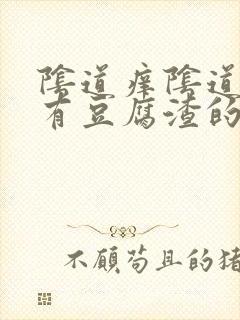 陰道痒陰道
有豆腐渣的
不顧苟且的猪